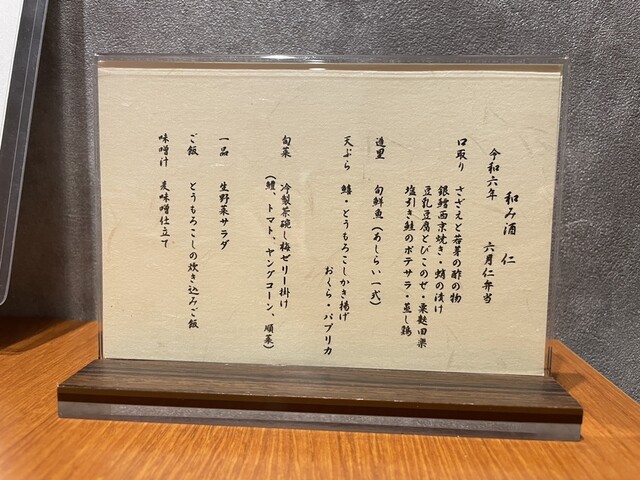 和み酒 仁
令和六年 六月仁弁当
口取り さざえと若芽の酢の物
銀鱈西京焼き・蛸の漬け
豆乳豆腐とびこのせ・粟麩田楽
塩引き鮭のポテサラ・蒸し鶏
造里 旬鮮魚(あしらい一式)
天ぷら 鱚・とうもろこしかき揚げ
おくら・パプリカ
旬菜 冷製茶碗し梅ゼリー掛け
(鱧、トマト、ヤングコーン、順菜)
一品 生野菜サラダ
ご飯 とうもろこしの炊き込みご飯
味噌汁 麦味噌仕立て